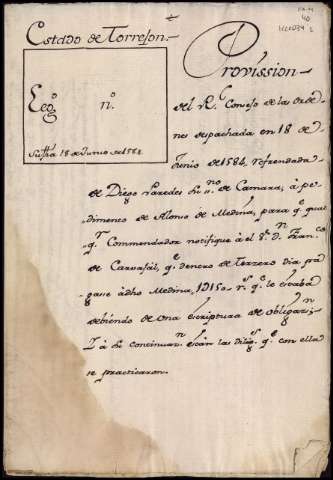 Estado de Torrejon.
Provission
Leg.º n.º
Su fha 18 de Junio de 1584.
del R.l Consejo de las Orde
nes despachada en 18 de
Junio de 1584, refrendada
de Diego Paredes es.no de Camara, à pe-
dimento de Alonso de Medina, para q.e qual
q.r Commendador notifique à el S.r D.n Fran.co
de Carvajal, q.e dentro de tercero dia pa
gase à dho Medina, r.s q.e le estaba
debiendo de una escriptura de obligaz.n
I à su continuaz.n están las dilig.s q.e con ella
se practicaron.